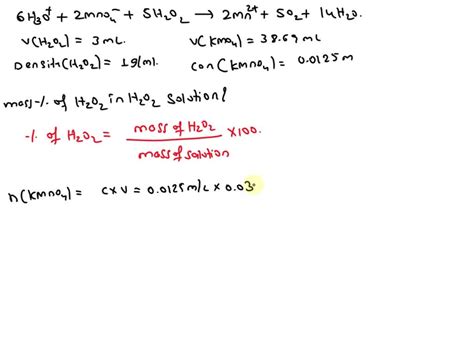 6H₃O⁺ + 2mno₄⁻ + 5H₂O₂ → 2mn²⁺ + 5O₂ + 14H₂O.
V(H₂O₂) = 3 mL. V(Kmno₄) = 38.69 mL
Density(H₂O₂) = 1g/ml. con(Kmno₄) = 0.0125 m
mass-% of H₂O₂ in H₂O₂ solution?
-% of H₂O₂ = mass of H₂O₂ / mass of solution × 100.
n(Kmno₄) = c×v = 0.0125 m/L × 0.03